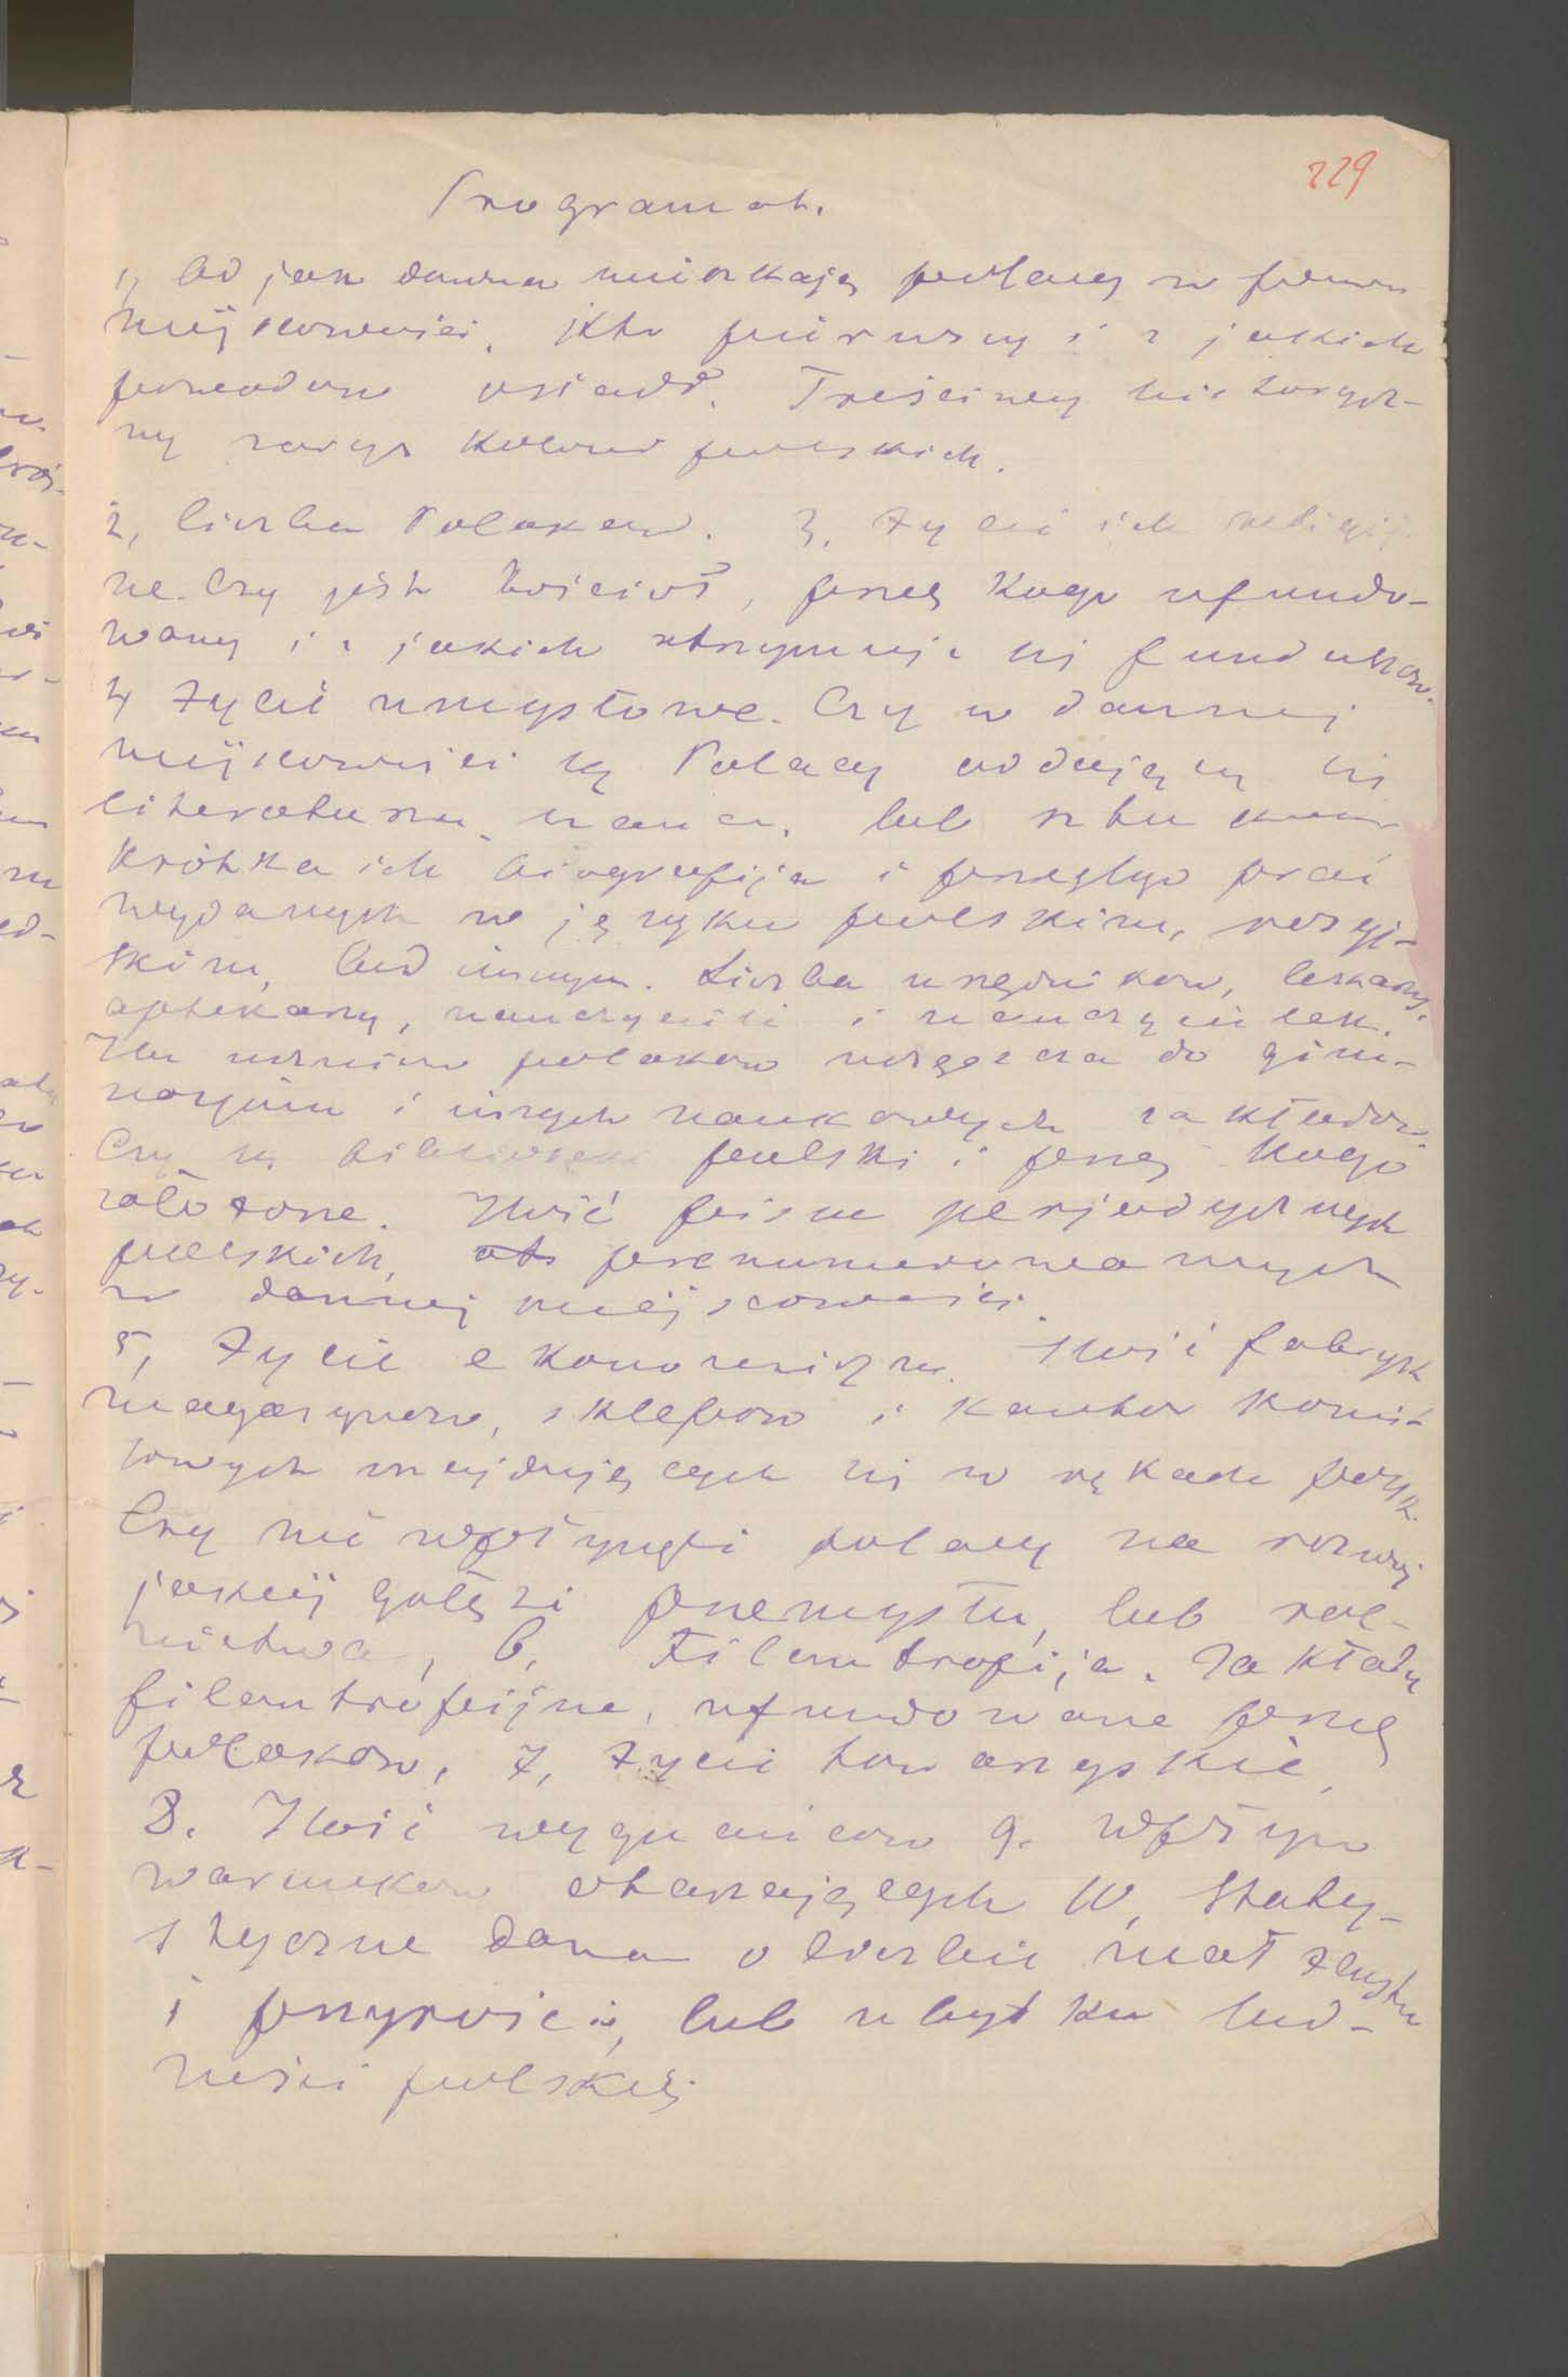 229
Programat.
1, Od jak dawna mieszkają polacy w
miejscowości, Kto pierwszy i z jakich
powodow osiadł. Treściwy historycz-
ny zarys kolonii polskich.
2, liczba Polakow. 3, Życie ich religij-
ne. Czy jest kościoł, przez kogo ufundo-
wany i z jakich utrzymuje się funduszow.
4, Życie umysłowe. Czy w dannej
miejscowości są Polacy oddający się
literaturze, nauce, lub sztuce
Krótka ich biografija i przegląd prac
wydanych w języku polskim, rosyj-
skim, lub innym. Liczba urzędnikow, lekarzy,
aptekarzy, nauczycieli i nauczycielek.
Ilu uczniow polakow uczęszcza do gim-
nazjum i innych naukowych zakładow.
Czy są bibliotek polski i przez kogo
założone. Ilość pism perjodycznych
polskich, prenumerowanych
w dannej miejscowości.
5, Życie ekonomiczne. Ilość fabryk
magazynow, sklepow i kantor komis-
sowych znajdujących się w rękach
Czy nie wpłynęli polacy na rozwoj
jakiej gałęzi przemysłu, lub rol-
nictwa, 6, Filantropija. Zakłady
filantropijne, ufundowane przez
polakow, 7, Życie towarzyskie,
8. Ilość wygnańcow 9. wpływ
warunkow otaczających 10, Staty-
styczne dane o liczbie małżeństw
i przyroście, lub ubytku lud-
ności polskiej